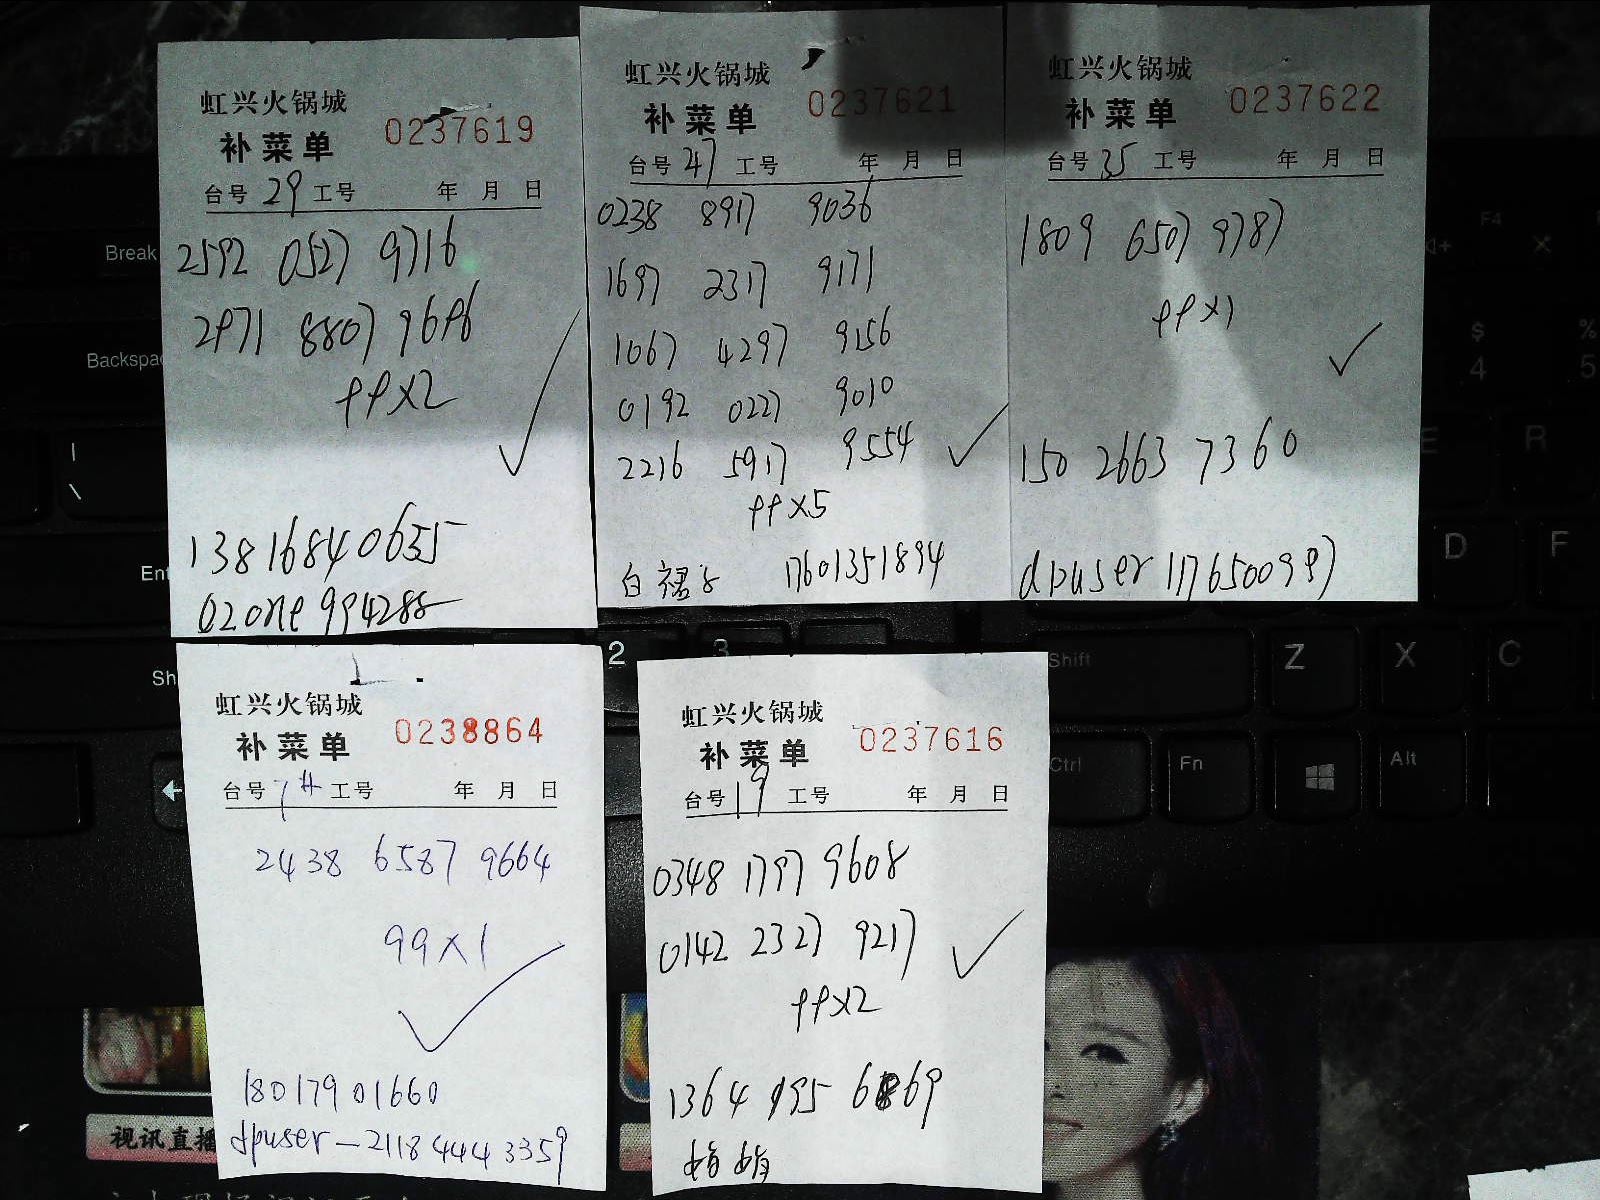 虹兴火锅城
补菜单 0237619
台号 29 工号 年 月 日
2592 0527 9716
2971 8807 9696
99×2
13816840655
ozone994288
虹兴火锅城
补菜单 0237621
台号 47 工号 年 月 日
0238 8917 9036
1697 2317 9171
1067 4297 9156
0192 0227 9010
2216 5917 9554
99×5
白裙子 17601351894
虹兴火锅城
补菜单 0237622
台号 35 工号 年 月 日
1809 6507 9787
99×1
150 2663 7360
dpuser 1176500997
虹兴火锅城
补菜单 0238864
台号 工号 年 月 日
2438 6587 9664
99×1
18017901660
dpuser-21184443359
虹兴火锅城
补菜单 0237616
台号 19 工号 年 月 日
0348 1797 9608
0142 2327 9217
99×2
1364 195 6869
娟娟
Break
Backspa
Ent
Sh
2
3
Shift
Z
X
C
Ctrl
Fn
Alt
F4
$
4
%
5
E
R
D
F
视讯直播